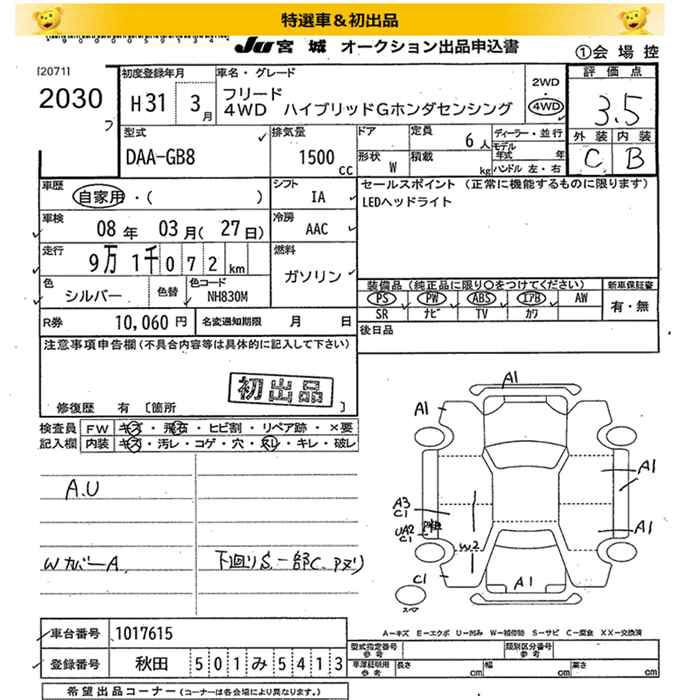 特選車＆初出品
JU宮城 オークション出品申込書
①会場控
[2071]
2030
フ
初度登録年月
H31 3月
車名・グレード
フリード
4WD ハイブリッドGホンダセンシング
2WD
4WD
評価点
3.5
外装 内装
C B
型式
DAA-GB8
排気量
1500 cc
ドア
形状 W
定員 6人
積載 kg
ディーラー・並行
モデル年式 年
ハンドル 左・右
車歴
自家用・( )
シフト
IA
セールスポイント (正常に機能するものに限ります)
LEDヘッドライト
車検
08年 03月(27日)
冷房
AAC
走行
9万1千072km
燃料
ガソリン
色
シルバー
色替
色コード
NH830M
装備品(純正品に限り○をつけてください)
PS PW ABS エアB AW
SR ナビ TV カワ
新車保証書
有・無
R券 10,060円
名変通知期限 月 日
後日品
注意事項申告欄(不具合内容等は具体的に記入して下さい)
初出品
修復歴 有 [箇所 ]
検査員記入欄
FW キズ・飛石・ヒビ割・リペア跡・×要
内装 キズ・汚レ・コゲ・穴・スレ・キレ・破レ
A.U
Wカバー A
下回りS.一部C.Pヌリ
A1
A1
A1
A3
C1
UA2
C1
W2
A1
C1
A1
スペア
A－キズ E－エクボ U－凹み W－補修跡 S－サビ C－腐食 XX－交換済
車台番号 1017615
登録番号 秋田 501み5413
型式指定番号
参考
類別区分番号
参考
車庫証明用
参考
長さ cm
幅 cm
高さ cm
希望出品コーナー (コーナーは各会場により異なります。)